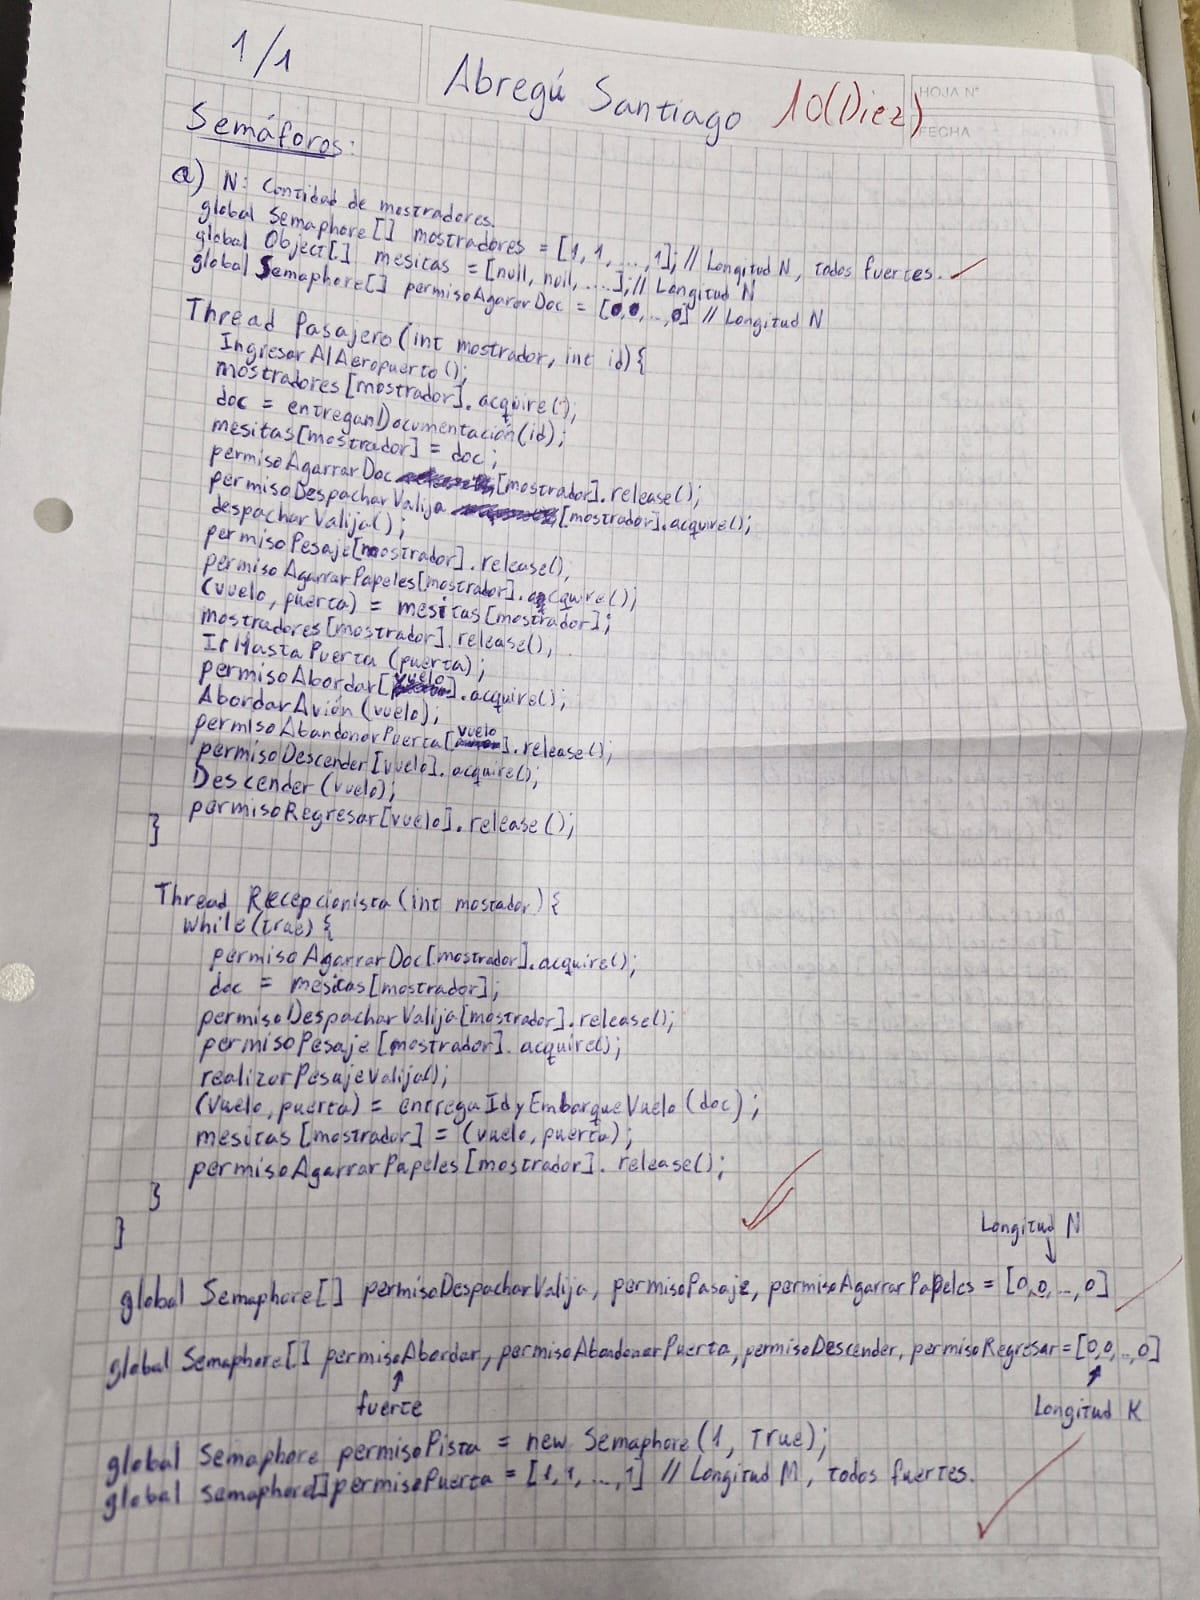 1/1
Abregú Santiago 10(Diez)
HOJA N°
FECHA
Semáforos:
a) N: Cantidad de mostradores.
global Semaphore[] mostradores = [1, 1, ..., 1]; // Longitud N, todos fuertes.
global Object[] mesitas = [null, null, ....]; // Longitud N
global Semaphore[] permisoAgarrarDoc = [0,0,...,0] // Longitud N
Thread Pasajero(int mostrador, int id){
IngresarAlAeropuerto();
mostradores[mostrador].acquire();
doc = entreganDocumentación(id);
mesitas[mostrador] = doc;
permisoAgarrarDoc [mostrador].release();
permisoDespacharValija [mostrador].acquire();
despacharValija();
permisoPesaje[mostrador].release();
permisoAgarrarPapeles[mostrador].acquire();
(vuelo, puerta) = mesitas[mostrador];
mostradores[mostrador].release();
IrHastaPuerta(puerta);
permisoAbordar[vuelo].acquire();
AbordarAvión(vuelo);
permisoAbandonarPuerta[vuelo].release();
permisoDescender[vuelo].acquire();
Descender(vuelo);
permisoRegresar[vuelo].release();
}
Thread Recepcionista(int mostador){
while(true){
permisoAgarrarDoc[mostrador].acquire();
doc = mesitas[mostrador];
permisoDespacharValija[mostrador].release();
permisoPesaje[mostrador].acquire();
realizarPesajeValija();
(vuelo, puerta) = entregaIdyEmbarqueVuelo(doc);
mesitas[mostrador] = (vuelo, puerta);
permisoAgarrarPapeles[mostrador].release();
}
}
Longitud N
global Semaphore[] permisoDespacharValija, permisoPasaje, permisoAgarrarPapeles = [0,0,...,0]
global Semaphore[] permisoAbordar, permisoAbandonarPuerta, permisoDescender, permisoRegresar = [0,0,...,0]
fuerte
Longitud K
global Semaphore permisoPista = new Semaphore(1, True);
global semaphore[] permisoPuerta = [1, 1, ..., 1] // Longitud M, todos fuertes.